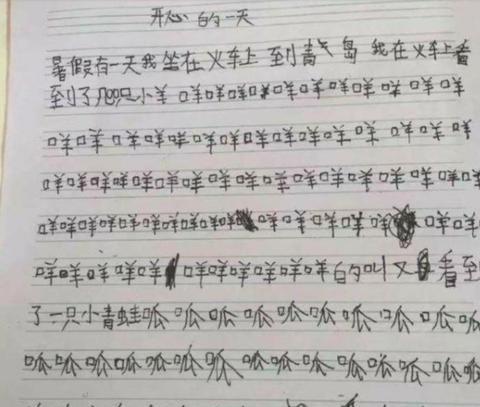 开心的一天
暑假有一天我坐在火车上到青岛我在火车上看
到了几只小羊咩咩咩咩咩咩咩咩咩咩咩咩
咩咩咩咩咩咩咩咩咩咩咩咩咩咩咩咩
咩咩咩咩咩咩咩咩咩咩咩咩咩咩咩咩咩咩
咩咩咩咩咩咩咩咩咩咩咩咩咩咩咩咩咩
咩咩咩咩咩咩咩咩咩咩咩的叫又看到
了一只小青蛙呱呱呱呱呱呱呱呱呱呱
呱呱呱呱呱呱呱呱呱呱呱呱呱呱